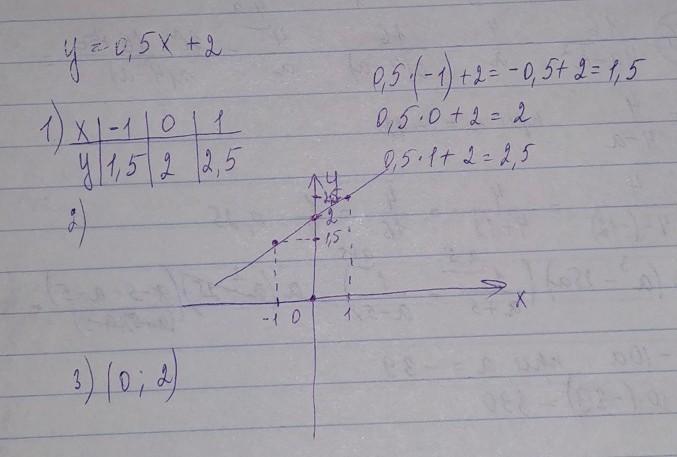 y = 0,5x + 2
0,5·(-1)+2 = -0,5+2 = 1,5
0,5·0+2 = 2
0,5·1+2 = 2,5
1) x | -1 | 0 | 1
y | 1,5 | 2 | 2,5
2)
y
2,5
2
1,5
-1 0 1 x
3) (0; 2)